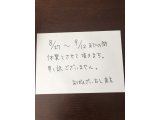 8/27 〜 9/12 までの間
休業とさせて頂きます。
申し訳ございません。